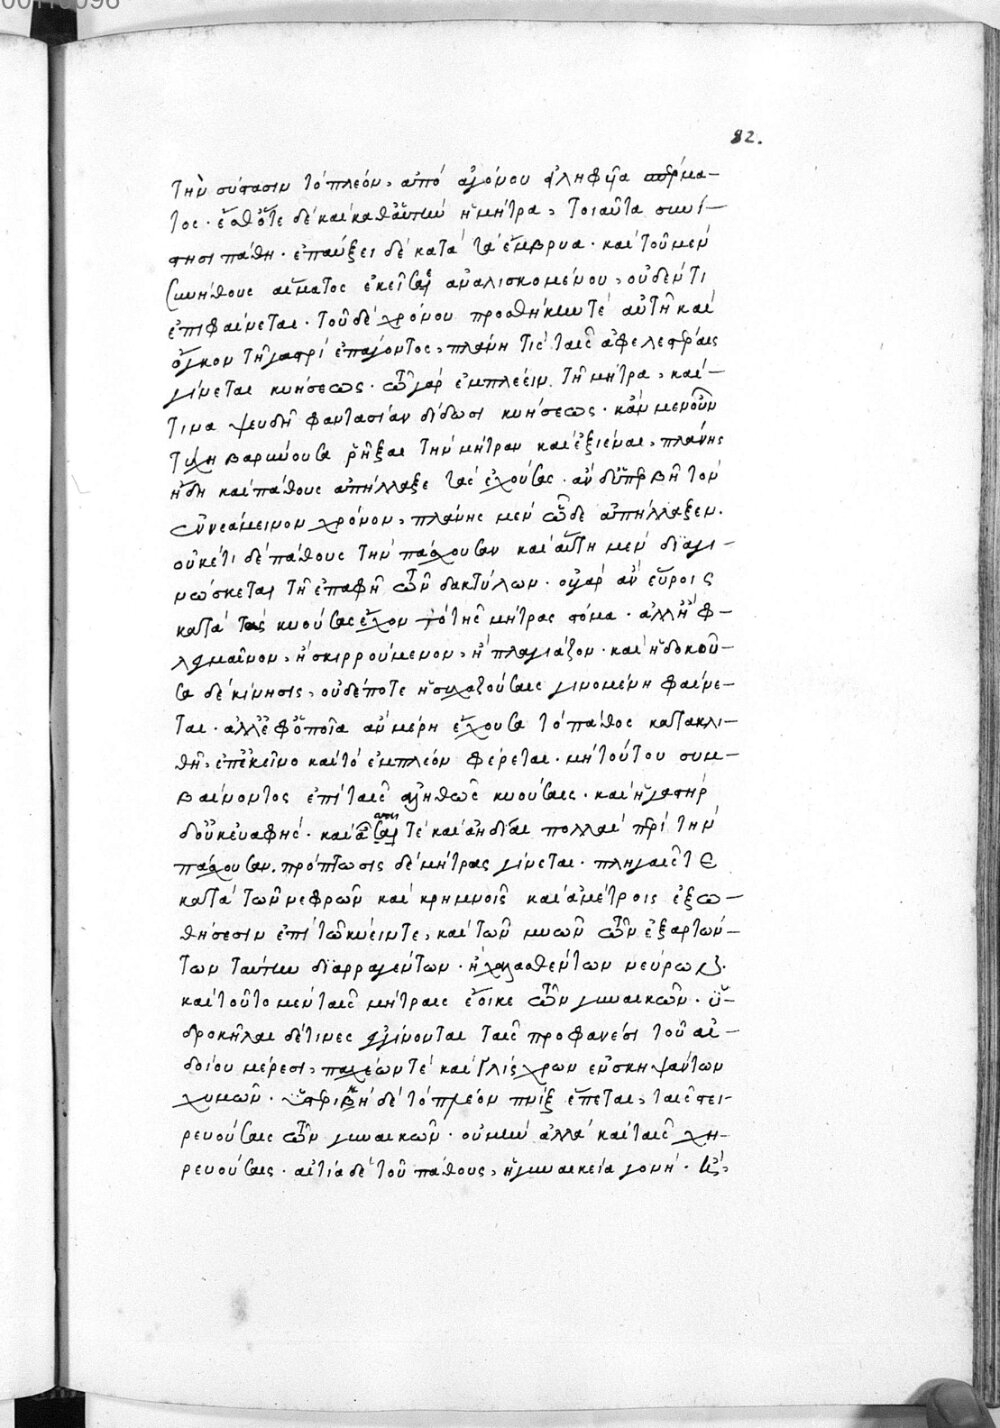 82.
τὴν σύστασιν τὸ πλέον, ἀπὸ ἀγόνου εἰληφυῖα σπέρμα-
τος. ἔσθ' ὅτε δὲ καὶ καθ' αὑτὴν ἡ μήτρα, τοιαῦτα συνί-
στησι πάθη. ἐπαύξει δὲ κατὰ τὰ ἔμβρυα. καὶ τοῦ μὲν
συνήθους αἵματος ἐκεῖσε ἀναλισκομένου, οὐδέν τι
ἐπιφαίνεται. τοῦ δὲ χρόνου προσθήκην τε αὐτῇ καὶ
ὄγκον τῇ γαστρὶ ἐπάγοντος, πλάνη τις ταῖς ἀφελεστέραις
γίνεται κυήσεως. τῶν γὰρ ἐμπλέειν τῇ μήτρα, καί-
τινα ψευδῆ φαντασίαν δίδωσι κυήσεως. κἂν μὲν οὖν
τύχη βαρυνουσα ῥῆξαι τὴν μήτραν καὶ ἐξιέναι, πλάνης
ἤδη καὶ πάθους ἀπήλλαξε τὰς ἐχούσας. ἂν δ' ὑπερβῆ τὸν
ἐννεάμεινον χρόνον, πλάνης μὲν ὧδε ἀπήλλαξεν.
οὐκέτι δὲ πάθους τὴν πάσχουσαν καὶ αὕτη μὲν διαγι-
νώσκεται τῇ ἐπαφῇ τῶν δακτύλων. οὐ γὰρ ἂν εὕροις
κατὰ τὰς κυούσας ἔχον τὸ τῆς μήτρας στόμα. ἀλλ' ἢ φ-
λεγμαῖνον, ἢ σκιρρούμενον, ἢ πλαγιάζον. καὶ ἡ δοκοῦ-
σα δὲ κίνησις, οὐδέποτε ἡσυχαζούσαις γινομένη φαίνε-
ται. ἀλλ' ἐφ' ὁποῖα ἂν μέρη ἔχουσα τὸ πάθος κατακλι-
θῇ, ἐπ' ἐκεῖνο καὶ τὸ ἐμπλέον φέρεται. μὴ τούτου συμ-
βαίνοντος ἐπὶ ταῖς ἀληθῶς κυούσαις. καὶ ἡ γαστὴρ
δ' οὐκ εὐαφής. καὶ τε καὶ ἀηδίαι πολλαὶ περὶ τὴν
πάσχουσαν. πρόπτωσις δὲ μήτρας γίνεται. πληγαῖς τε
κατὰ τῶν νεφρῶν καὶ κρημνοῖς καὶ ἀμέτροις ἐξω-
θήσεσιν ἐπὶ τῷ κυεῖν τε, καὶ τῶν μυῶν τῶν ἐξαρτών-
των ταύτην διαρραγέντων. ἢ χαλασθέντων νεύρων.
καὶ τοῦτο μὲν ταῖς μήτραις ἔοικε τῶν γυναικῶν. ὑ-
δροκῆλαι δέ τινες γίνονται ταῖς προφανέσι τοῦ αἰ-
δοίου μέρεσι, παχέων τε καὶ γλίσχρων ἐνσκηψάντων
χυμῶν. ὑστερικὴ δὲ τὸ πλέον πνὶξ ἕπεται, ταῖς στει-
ρευούσαις τῶν γυναικῶν. οὐ μὴν ἀλλὰ καὶ ταῖς χη-
ρευούσαις. αἰτία δὲ τοῦ πάθους, ἡ γυναικεία γονή.